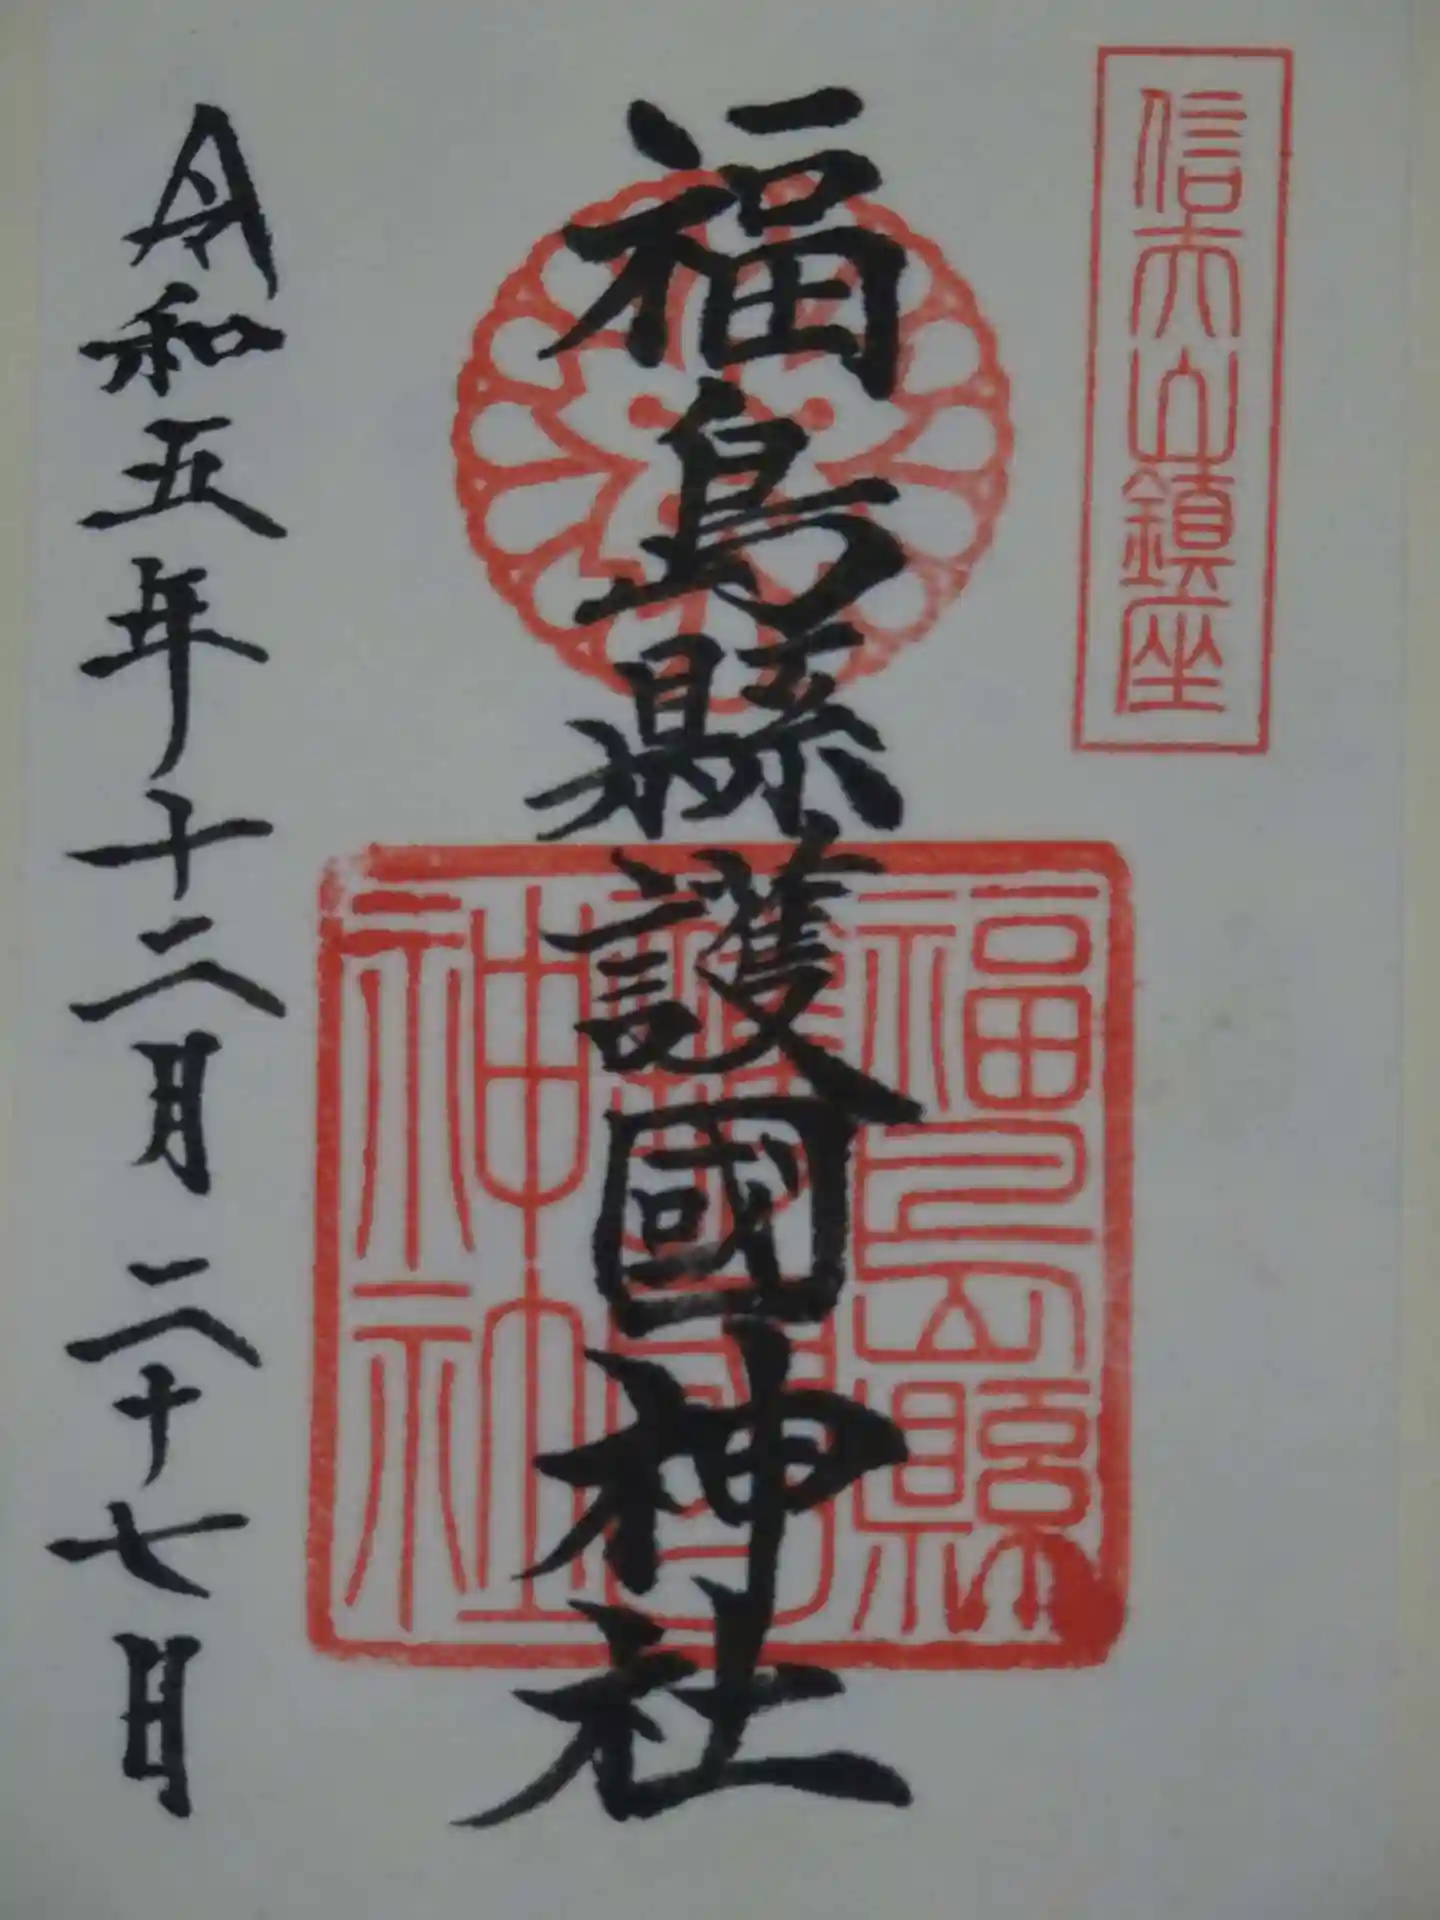 信夫山鎮座
福島縣護國神社
福島縣
護國
神社
令和五年十二月二十七日